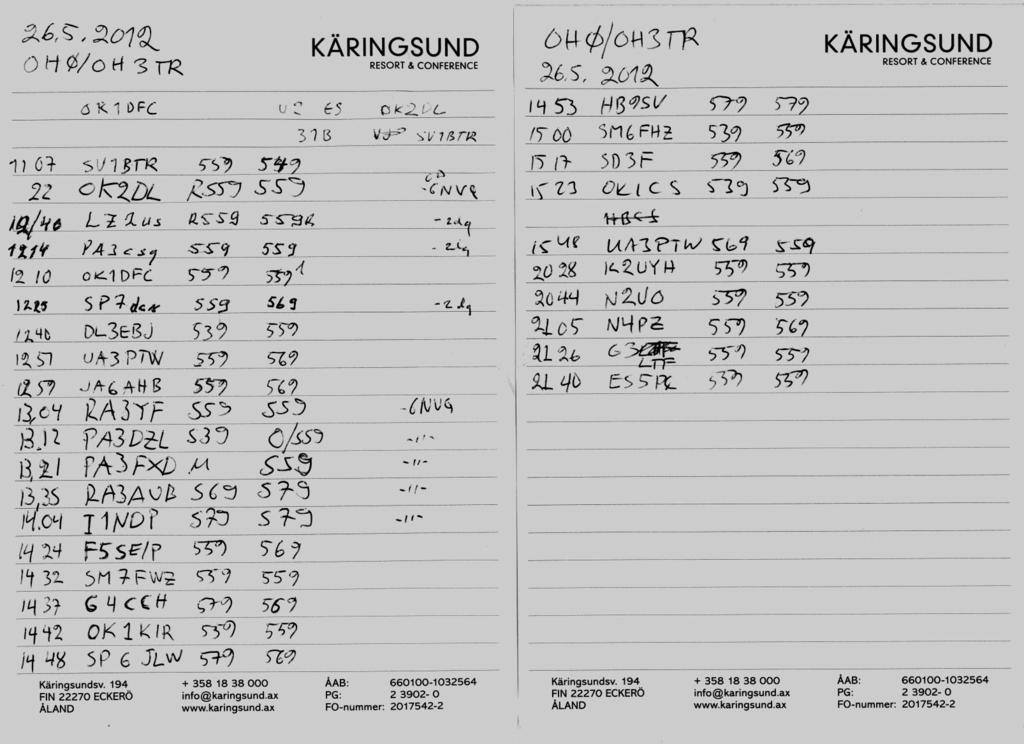 26.5.2012
OHØ/OH3TR
KÄRINGSUND
RESORT & CONFERENCE
OK1DFC ES OK2DL
31B SV1BTR
11 07 SV1BTR 559 549
22 OK2DL R559 559 -GNVQ
/40 LZ2us R559 559R
1214 PA3csg 559 559
12 10 OK1DFC 559 559
1225 SP7dcs 559 569
1240 DL3EBJ 539 559
1257 UA3PTW 559 569
1259 JA6AHB 559 569
13.04 RA3YF 559 559 -GNVQ
13.12 PA3DZL 539 O/559 -11-
13.21 PA3FXD M 559 -11-
13.35 RA3AUB 569 579 -11-
14.04 I1NDP 579 579 -11-
14 24 F5SE/P 559 569
14 32 SM7FWZ 559 559
14 37 G4CCH 579 569
14 42 OK1KIR 559 559
14 48 SP6JLW 579 569
Käringsundsv. 194 + 358 18 38 000 ÅAB: 660100-1032564
FIN 22270 ECKERÖ info@karingsund.ax PG: 2 3902- 0
ÅLAND www.karingsund.ax FO-nummer: 2017542-2
OHØ/OH3TR
26.5. 2012
KÄRINGSUND
RESORT & CONFERENCE
14 53 HB9SV 579 579
15 00 SM6FHZ 539 559
15 17 SD3F 559 569
15 23 OK1CS 539 559
15 48 UA3PTW 569 559
20 28 K2UYH 559 559
2044 N2UO 559 559
21 05 N4PZ 559 569
21 26 G3LTF 559 559
21 40 ES5PC 539 539
Käringsundsv. 194 + 358 18 38 000 ÅAB: 660100-1032564
FIN 22270 ECKERÖ info@karingsund.ax PG: 2 3902- 0
ÅLAND www.karingsund.ax FO-nummer: 2017542-2